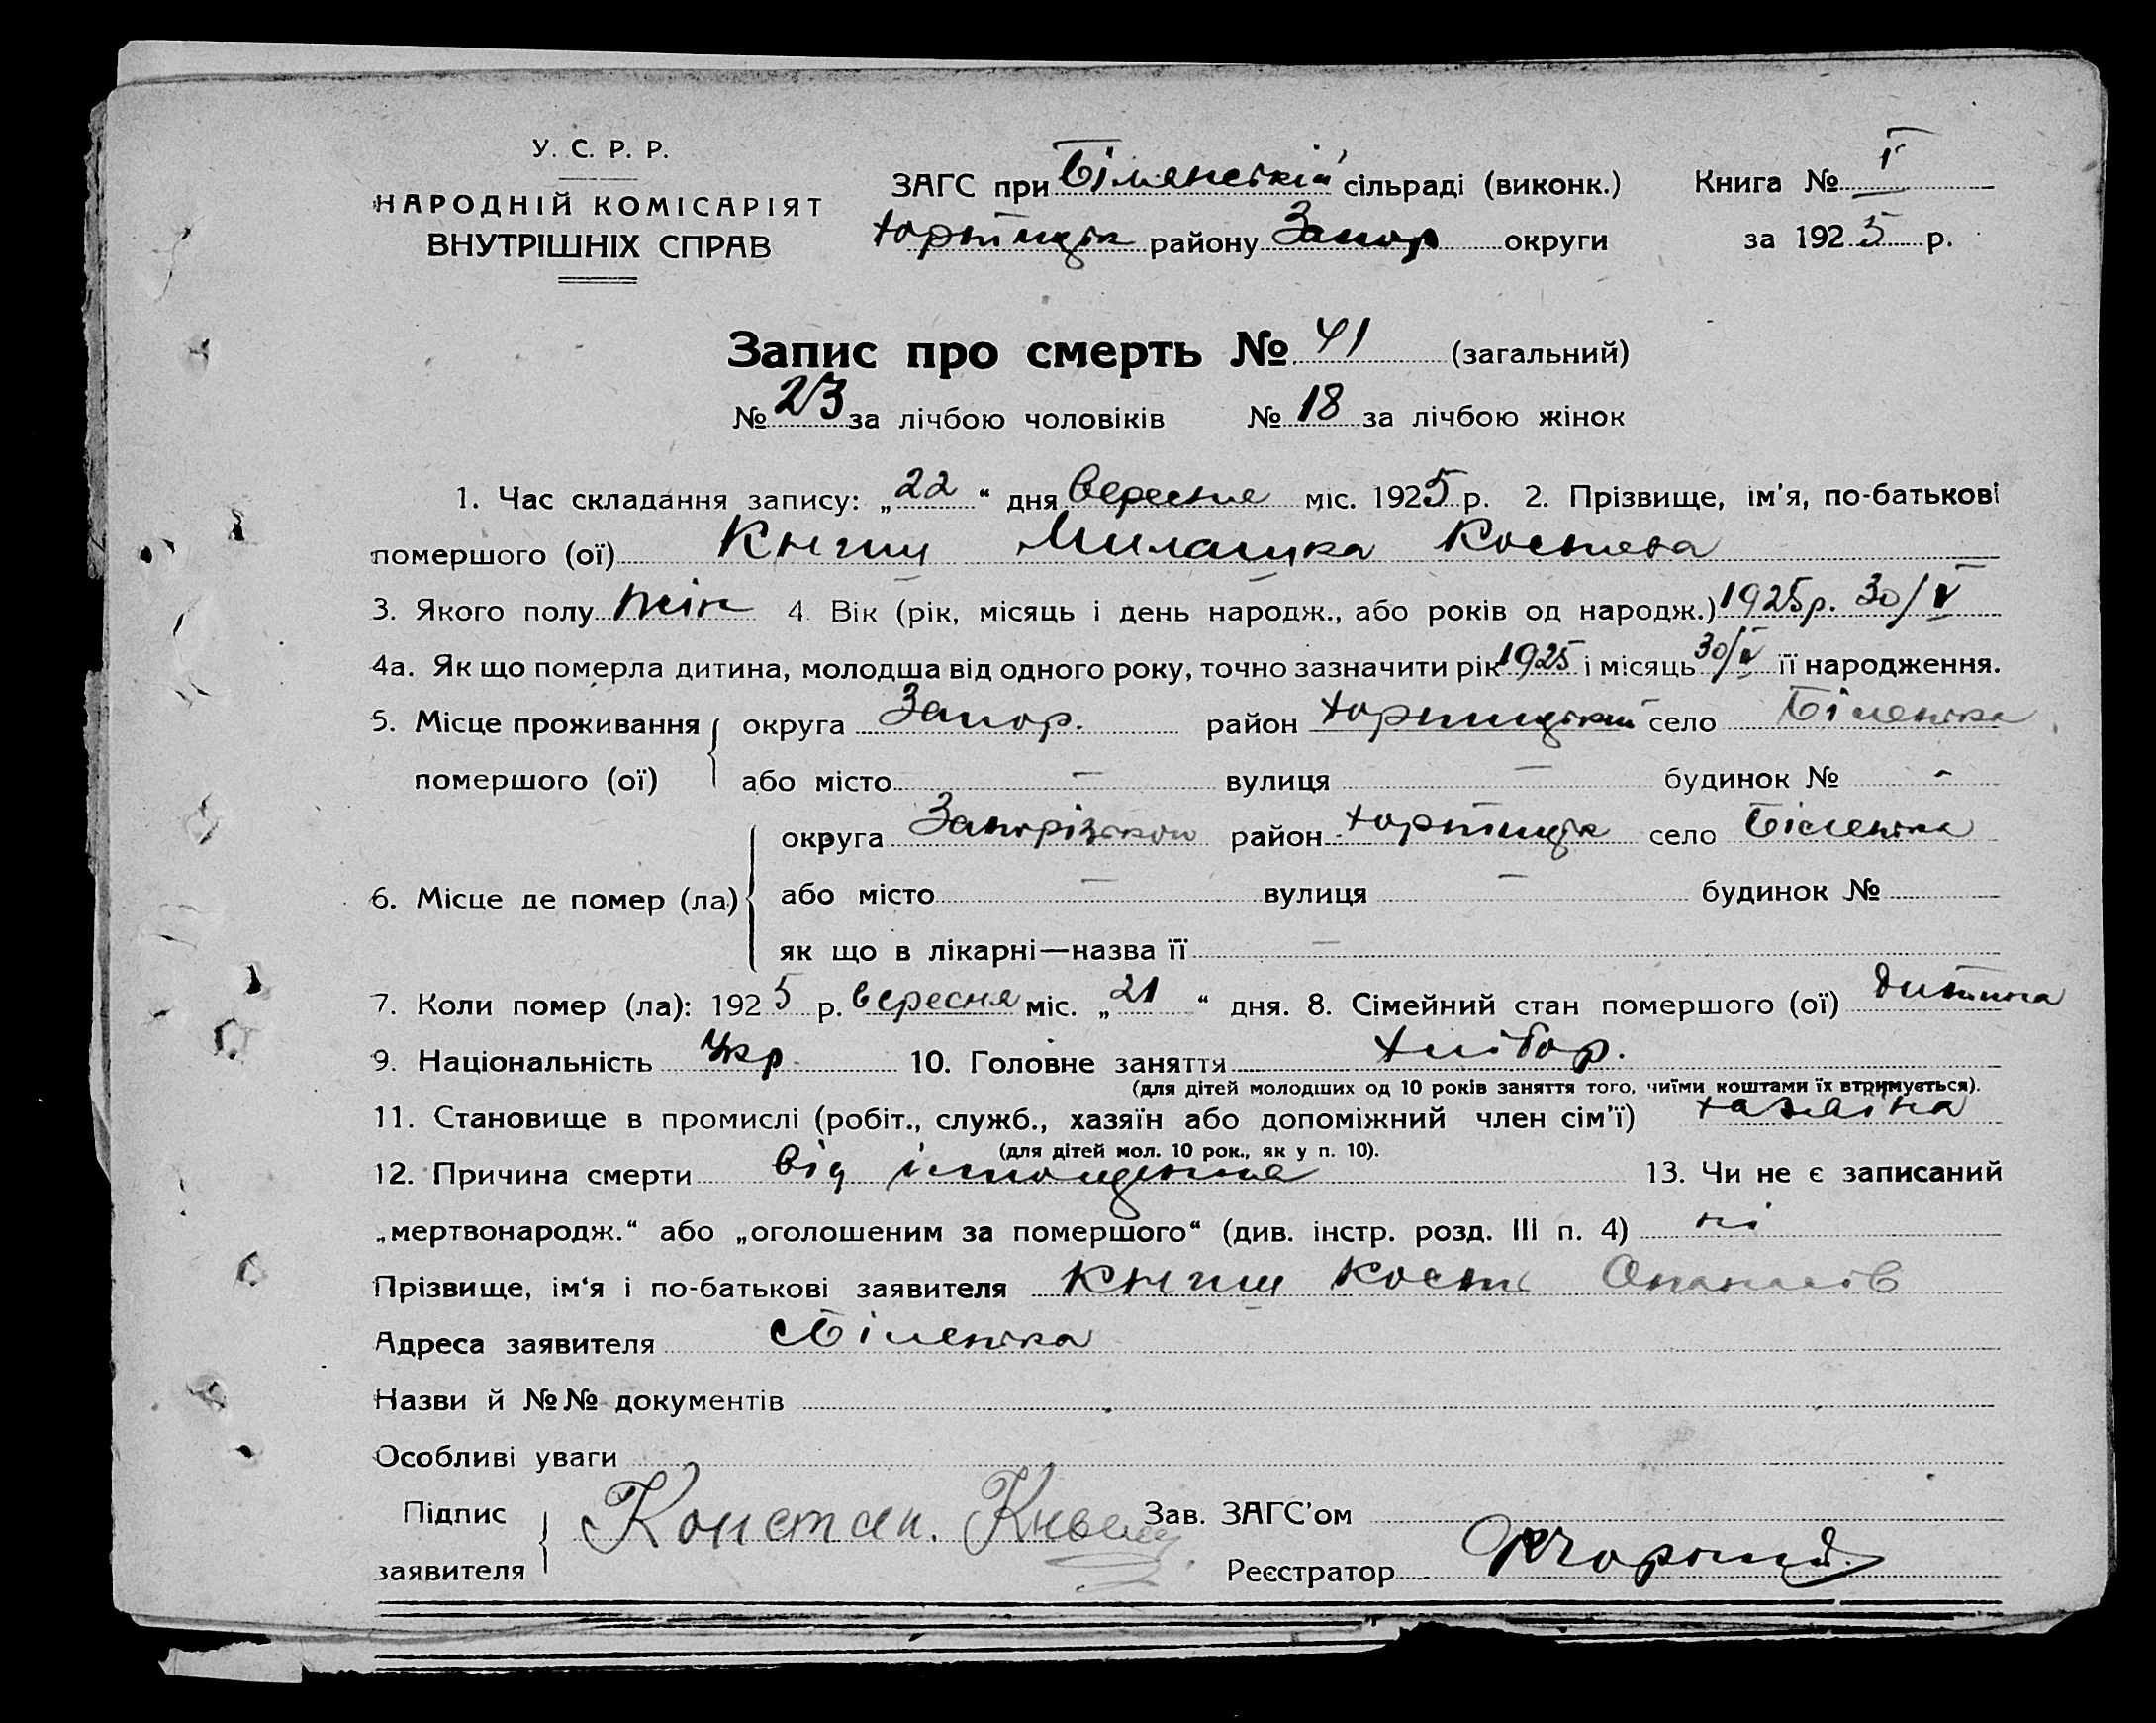 У. С. Р. Р.
НАРОДНІЙ КОМІСАРІЯТ
ВНУТРІШНІХ СПРАВ
ЗАГС при Біленській сільраді (виконк.)
Хортицьк району Запор округи
Книга № I
за 1925 р.
Запис про смерть № 41 (загальний)
№ 23 за лічбою чоловіків № 18 за лічбою жінок
1. Час складання запису: „22“ дня вересня міс. 1925 р. 2. Прізвище, ім'я, по-батькові
помершого (ої) Книш Милашка Костева
3. Якого полу жін 4 Вік (рік, місяць і день народж., або років од народж.) 1925 р. 30/V
4а. Як що померла дитина, молодша від одного року, точно зазначити рік 1925 і місяць 30/V її народження.
5. Місце проживання помершого (ої) округа Запор. район Хортицький село Біленька
або місто — вулиця — будинок № -
6. Місце де помер (ла) округа Запорізькой район Хортицьк село Біленька
або місто — вулиця — будинок №
як що в лікарні—назва її —
7. Коли помер (ла): 1925 р. вересня міс. „21“ дня. 8. Сімейний стан помершого (ої) дитина
9. Національність Укр 10. Головне заняття хлібор.
(для дітей молодших од 10 років заняття того, чиїми коштами їх втримується).
11. Становище в промислі (робіт., служб., хазяїн або допоміжний член сім'ї) хазяїна
(для дітей мол. 10 рок., як у п. 10).
12. Причина смерти від істощення 13. Чи не є записаний
„мертвонародж.“ або „оголошеним за помершого“ (див. інстр. розд. III п. 4) ні
Прізвище, ім'я і по-батькові заявителя Книш Кость Опанасів
Адреса заявителя с Біленька
Назви й №№ документів
Особливі уваги
Підпис заявителя Констан. Кныш
Зав. ЗАГС'ом
Реєстратор